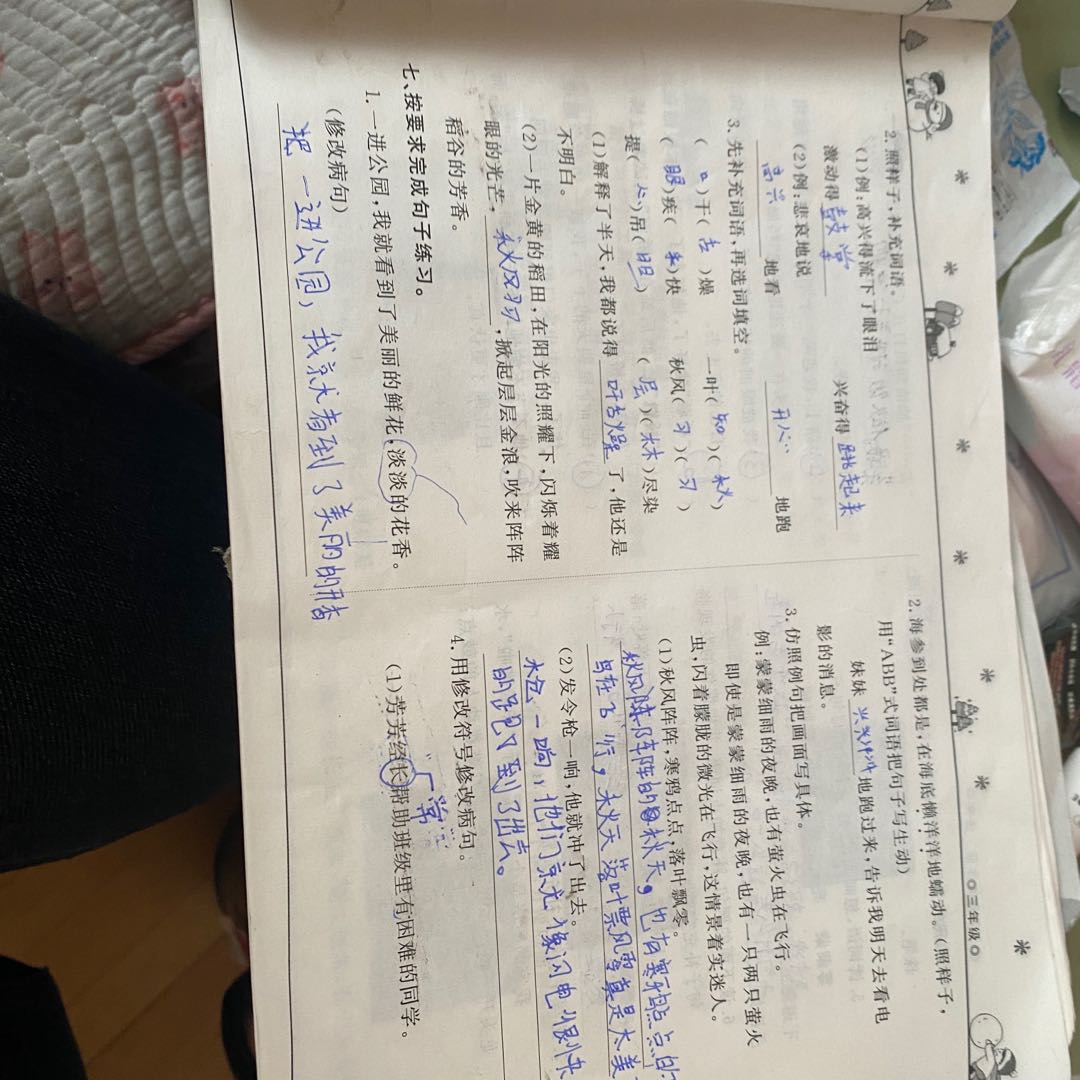 2. 照样子,补充词语。
(1)例:高兴得流下了眼泪
激动得 鼓掌 兴奋得 跳起来
(2)例:悲哀地说
高兴 地看 开心 地跑
3. 先补充词语,再选词填空。
( 口 )干( 舌 )燥 一叶( 知 )( 秋 )
( 眼 )疾( 手 )快 秋风( 习 )( 习 )
提( 心 )吊( 胆 ) ( 层 )( 林 )尽染
(1)解释了半天,我都说得 口舌燥 了,他还是
不明白。
(2)一片金黄的稻田,在阳光的照耀下,闪烁着耀
眼的光芒, 秋风习习 ,掀起层层金浪,吹来阵阵
稻谷的芳香。
七、按要求完成句子练习。
1. 一进公园,我就看到了美丽的鲜花,淡淡的花香。
(修改病句)
一进公园,我就看到了美丽的
三年级
2. 海参到处都是,在海底懒洋洋地蠕动。(照样子,
用“ABB”式词语把句子写生动)
妹妹 兴冲冲 地跑过来,告诉我明天去看电
影的消息。
3. 仿照例句把画面写具体。
例:蒙蒙细雨的夜晚,也有萤火虫在飞行。
即使是蒙蒙细雨的夜晚,也有一只两只萤火
虫,闪着朦胧的微光在飞行,这情景着实迷人。
(1)秋风阵阵,寒鸦点点,落叶飘零。
秋风阵阵的秋天,也有寒鸦点点的
(2)发令枪一响,他就冲了出去。
枪一响,他们就像闪电很快
的跑到了出去。
4. 用修改符号修改病句。
(1)芳芳经长帮助班级里有困难的同学。
常